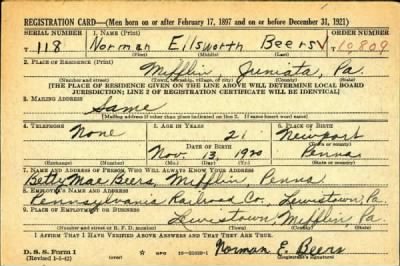 REGISTRATION CARD—(Men born on or after February 17, 1897 and on or before December 31, 1921)
SERIAL NUMBER 1. NAME (Print) ORDER NUMBER
T 118 Norman Ellsworth Beers T 10809
(First) (Middle) (Last)
2. PLACE OF RESIDENCE (Print)
Mifflin Juniata, Pa.
(Number and street) (Town, township, village, or city) (County) (State)
[THE PLACE OF RESIDENCE GIVEN ON THE LINE ABOVE WILL DETERMINE LOCAL BOARD
JURISDICTION; LINE 2 OF REGISTRATION CERTIFICATE WILL BE IDENTICAL]
3. MAILING ADDRESS
Same
(Mailing address if other than place indicated on line 2. If same insert word same)
4. TELEPHONE 5. AGE IN YEARS 6. PLACE OF BIRTH
None 21 Newport
DATE OF BIRTH (Town or county)
Nov. 13, 1920 Penna
(Exchange) (Number) (Mo.) (Day) (Yr.) (State or country)
7. NAME AND ADDRESS OF PERSON WHO WILL ALWAYS KNOW YOUR ADDRESS
Betty Mae Beers, Mifflin, Penna
8. EMPLOYER'S NAME AND ADDRESS
Pennsylvania Railroad Co., Lewistown, Pa.
9. PLACE OF EMPLOYMENT OR BUSINESS
Lewistown, Mifflin, Pa.
(Number and street or R. F. D. number) (Town) (County) (State)
I AFFIRM THAT I HAVE VERIFIED ABOVE ANSWERS AND THAT THEY ARE TRUE.
D. S. S. Form 1
(Revised 1-5-42) Norman E. Beers
(Registrant's signature)